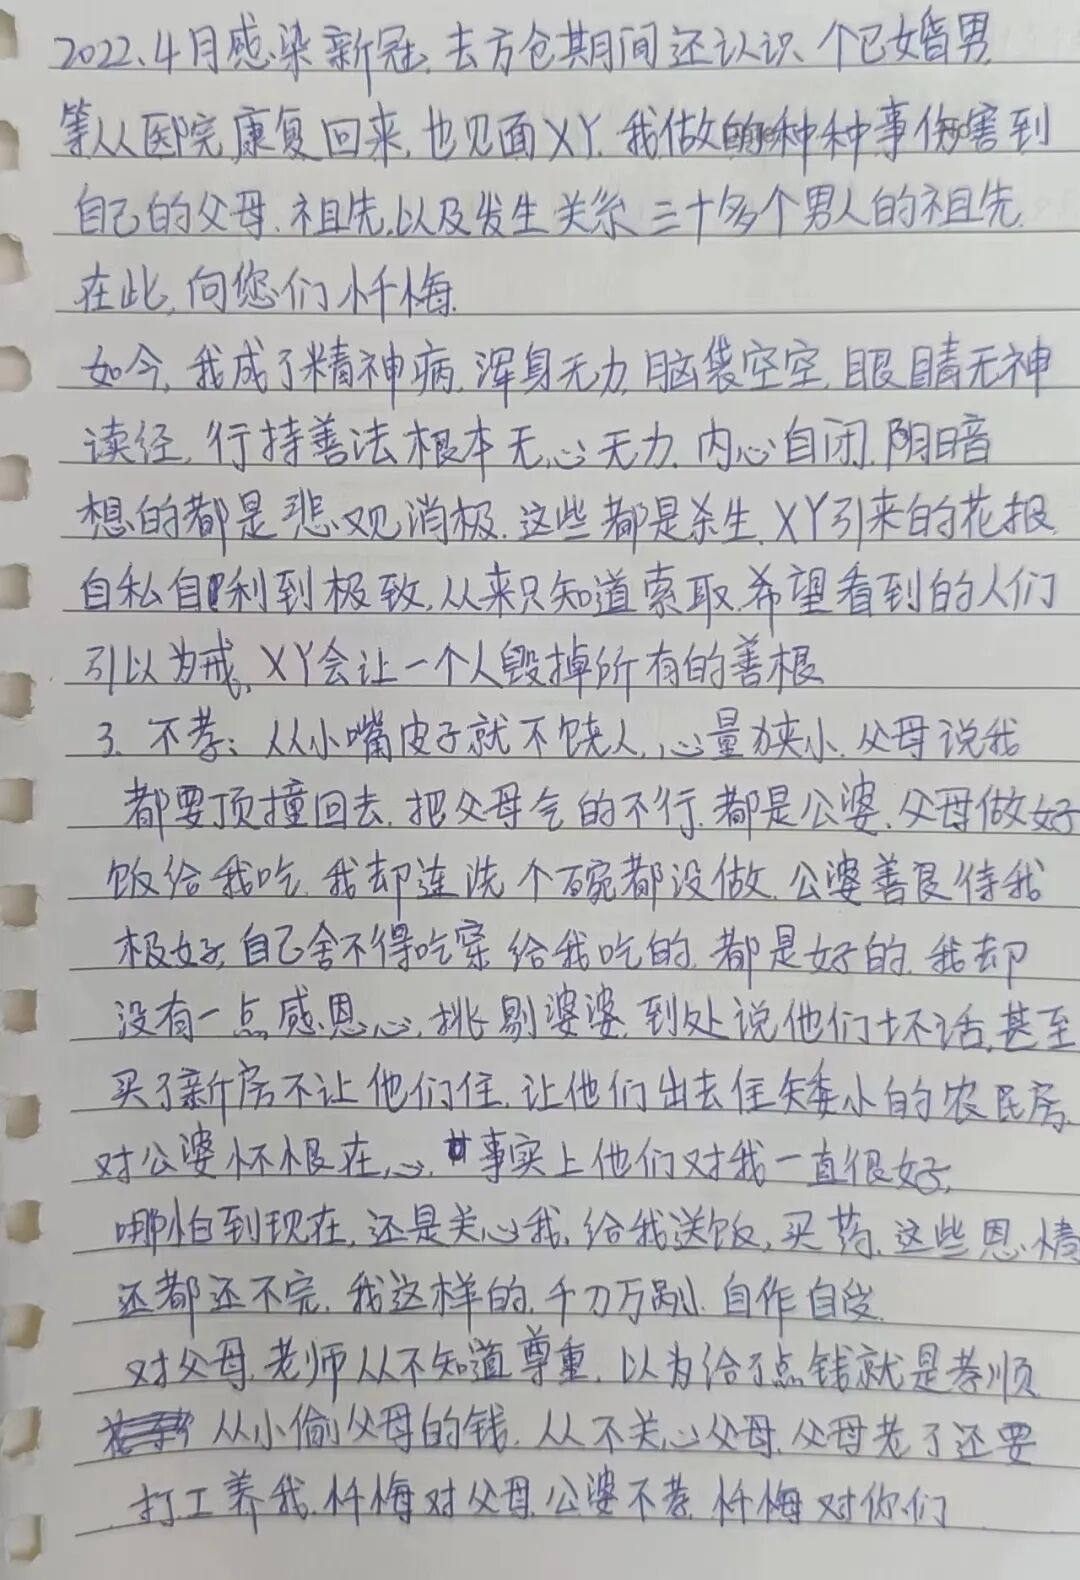 2022、4月感染新冠,去方仓其间还认识、个已婚男
等从医院康复回来,也见面XY.我做的种种事伤害到
自己的父母.祖先.以及发生关系三十多个男人的祖先.
在此,向您们忏悔.
如今,我成了精神病.浑身无力,脑袋空空,眼睛无神
读经,行持善法根本无心无力.内心自闭.阴暗
想的都是悲观消极.这些都是杀生.XY引来的花报.
自私自利到极致,从来只知道索取.希望看到的人们
引以为戒,XY会让一个人毁掉所有的善根
3、不孝:从小嘴皮子就不饶人,心量狭小.父母说我
都要顶撞回去.把父母气的不行.都是公婆.父母做好
饭给我吃.我却连洗个碗都没做.公婆善良待我
极好,自己舍不得吃穿给我吃的都是好的.我却
没有一点感恩心,挑剔婆婆.到处说他们坏话,甚至
买了新房不让他们住.让他们出去住矮小的农民房.
对公婆怀恨在心.事实上他们对我一直很好,
哪怕到现在,还是关心我,给我送饭,买药.这些恩情
还都还不完.我这样的.千刀万剐.自作自受
对父母.老师从不知道尊重.以为给了点钱就是孝顺
从小偷父母的钱.从不关心父母.父母老了还要
打工养我.忏悔对父母.公婆不孝.忏悔对你们